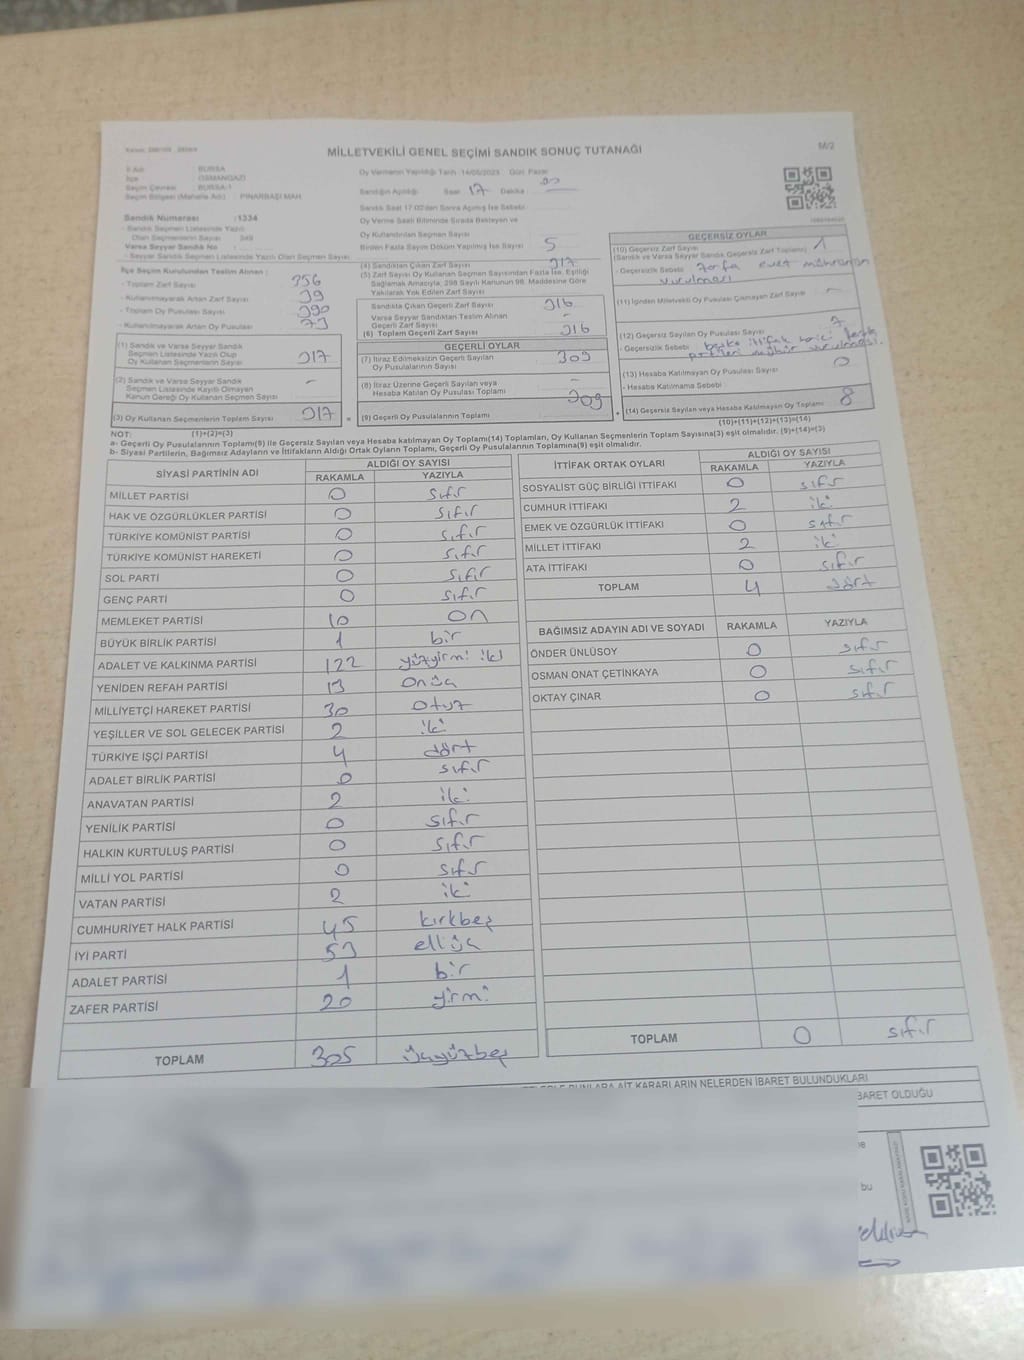 MİLLETVEKİLİ GENEL SEÇİMİ SANDIK SONUÇ TUTANAĞI
M/2
İl Adı BURSA
İlçe OSMANGAZİ
Seçim Çevresi BURSA-1
Seçim Bölgesi (Mahalle Adı) : PINARBAŞI MAH.
Sandık Numarası :1334
- Sandık Seçmen Listesinde Yazılı
Olan Seçmenlerin Sayısı : 349
Varsa Seyyar Sandık No :
- Seyyar Sandık Seçmen Listesinde Yazılı Olan Seçmen Sayısı
Oy Vermenin Yapıldığı Tarih :14/05/2023 Gün: Pazar
Sandığın Açıldığı Saat 17 Dakika 00
Sandık Saat 17:00'den Sonra Açılmış İse Sebebi
Oy Verme Saati Bitiminde Sırada Bekleyen ve
Oy Kullandırılan Seçmen Sayısı
Birden Fazla Sayım Döküm Yapılmış İse Sayısı 5
İlçe Seçim Kurulundan Teslim Alınan :
- Toplam Zarf Sayısı 356
- Kullanılmayarak Artan Zarf Sayısı 39
- Toplam Oy Pusulası Sayısı 390
- Kullanılmayarak Artan Oy Pusulası 73
(1) Sandık ve Varsa Seyyar Sandık
Seçmen Listesinde Yazılı Olup
Oy Kullanan Seçmenlerin Sayısı 317
(2) Sandık ve Varsa Seyyar Sandık
Seçmen Listesinde Kayıtlı Olmayan
Kanun Gereği Oy Kullanan Seçmen Sayısı -
(3) Oy Kullanan Seçmenlerin Toplam Sayısı 317 =
(4) Sandıktan Çıkan Zarf Sayısı 317
(5) Zarf Sayısı Oy Kullanan Seçmen Sayısından Fazla İse, Eşitliği
Sağlamak Amacıyla, 298 Sayılı Kanunun 98. Maddesine Göre
Yakılarak Yok Edilen Zarf Sayısı
Sandıkta Çıkan Geçerli Zarf Sayısı 316
Varsa Seyyar Sandıktan Teslim Alınan
Geçerli Zarf Sayısı -
(6) Toplam Geçerli Zarf Sayısı 316
GEÇERLİ OYLAR
(7) İtiraz Edilmeksizin Geçerli Sayılan
Oy Pusulası Sayısı 309
(8) İtiraz Üzerine Geçerli Sayılan veya
Hesaba Katılan Oy Pusulası Toplamı -
(9) Geçerli Oy Pusulalarının Toplamı 309 +
GEÇERSİZ OYLAR
(10) Geçersiz Zarf Sayısı
(Sandık ve Varsa Seyyar Sandık Geçersiz Zarf Toplamı) 1
- Geçersizlik Sebebi zarfa evet mührünün
vurulması
(11) İçinden Milletvekili Oy Pusulası Çıkmayan Zarf Sayısı -
(12) Geçersiz Sayılan Oy Pusulası Sayısı 7
- Geçersizlik Sebebi başka ittifak harici
partileri mühür vurulması.
(13) Hesaba Katılmayan Oy Pusulası Sayısı 0
- Hesaba Katılmama Sebebi
(14) Geçersiz Sayılan veya Hesaba Katılmayan Oy Toplamı 8
(10)+(11)+(12)+(13)=(14)
NOT: (1)+(2)=(3)
a- Geçerli Oy Pusulalarının Toplamı(9) ile Geçersiz Sayılan veya Hesaba katılmayan Oy Toplamı(14) Toplamları, Oy Kullanan Seçmenlerin Toplam Sayısına(3) eşit olmalıdır. (9)+(14)=(3)
b- Siyasi Partilerin, Bağımsız Adayların ve İttifakların Aldığı Ortak Oyların Toplamı, Geçerli Oy Pusulalarının Toplamına(9) eşit olmalıdır.
SİYASİ PARTİNİN ADI ALDIĞI OY SAYISI
RAKAMLA YAZIYLA
MİLLET PARTİSİ 0 sıfır
HAK VE ÖZGÜRLÜKLER PARTİSİ 0 sıfır
TÜRKİYE KOMÜNİST PARTİSİ 0 sıfır
TÜRKİYE KOMÜNİST HAREKETİ 0 sıfır
SOL PARTİ 0 sıfır
GENÇ PARTİ 0 sıfır
MEMLEKET PARTİSİ 10 on
BÜYÜK BİRLİK PARTİSİ 1 bir
ADALET VE KALKINMA PARTİSİ 122 yüzyirmi iki
YENİDEN REFAH PARTİSİ 13 onüç
MİLLİYETÇİ HAREKET PARTİSİ 30 otuz
YEŞİLLER VE SOL GELECEK PARTİSİ 2 iki
TÜRKİYE İŞÇİ PARTİSİ 4 dört
ADALET BİRLİK PARTİSİ 0 sıfır
ANAVATAN PARTİSİ 2 iki
YENİLİK PARTİSİ 0 sıfır
HALKIN KURTULUŞ PARTİSİ 0 sıfır
MİLLİ YOL PARTİSİ 0 sıfır
VATAN PARTİSİ 2 iki
CUMHURİYET HALK PARTİSİ 45 kırkbeş
İYİ PARTİ 53 elliüç
ADALET PARTİSİ 1 bir
ZAFER PARTİSİ 20 yirmi
TOPLAM 305 üçyüzbeş
İTTİFAK ORTAK OYLARI ALDIĞI OY SAYISI
RAKAMLA YAZIYLA
SOSYALİST GÜÇ BİRLİĞİ İTTİFAKI 0 sıfır
CUMHUR İTTİFAKI 2 iki
EMEK VE ÖZGÜRLÜK İTTİFAKI 0 sıfır
MİLLET İTTİFAKI 2 iki
ATA İTTİFAKI 0 sıfır
TOPLAM 4 dört
BAĞIMSIZ ADAYIN ADI VE SOYADI RAKAMLA YAZIYLA
ÖNDER ÜNLÜSOY 0 sıfır
OSMAN ONAT ÇETİNKAYA 0 sıfır
OKTAY ÇINAR 0 sıfır
TOPLAM 0 sıfır
AİT KARARLARIN NELERDEN İBARET BULUNDUKLARI
BARET OLDUĞU
bu